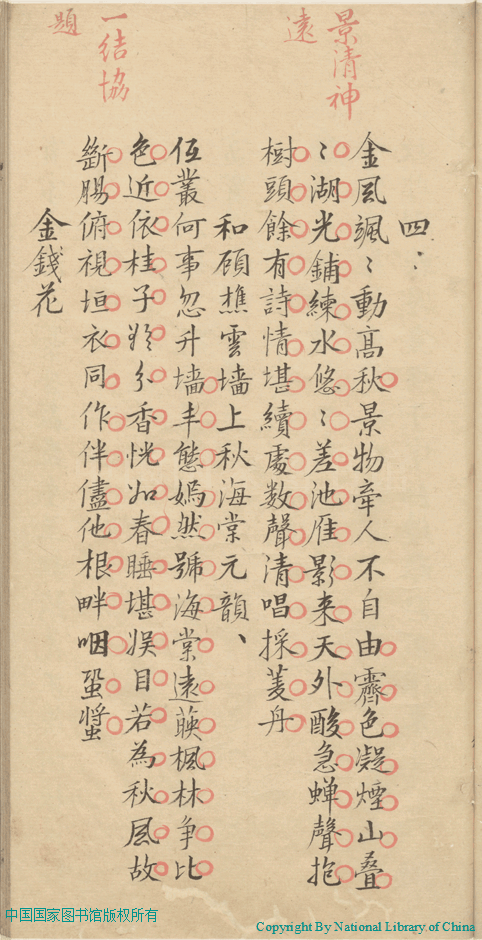 景清神
遠
四〻
金風颯〻動高秋景物牽人不自由霽色凝煙山叠
〻湖光鋪練水悠〻差池雁影来天外酸急蝉聲抱
樹頭餘有詩情堪續處数聲清唱採菱舟
和頋樵雲墻上秋海棠元韻、
一結協
題
低叢何事忽升墙丰態嫣然號海棠遠暎楓林争比
色近依桂子分香恍如春睡堪娱目若為秋風故
斷腸俯視垣衣同作伴儘他根畔咽蛩螿
金錢花
中国国家图书馆版权所有
Copyright By National Library of China